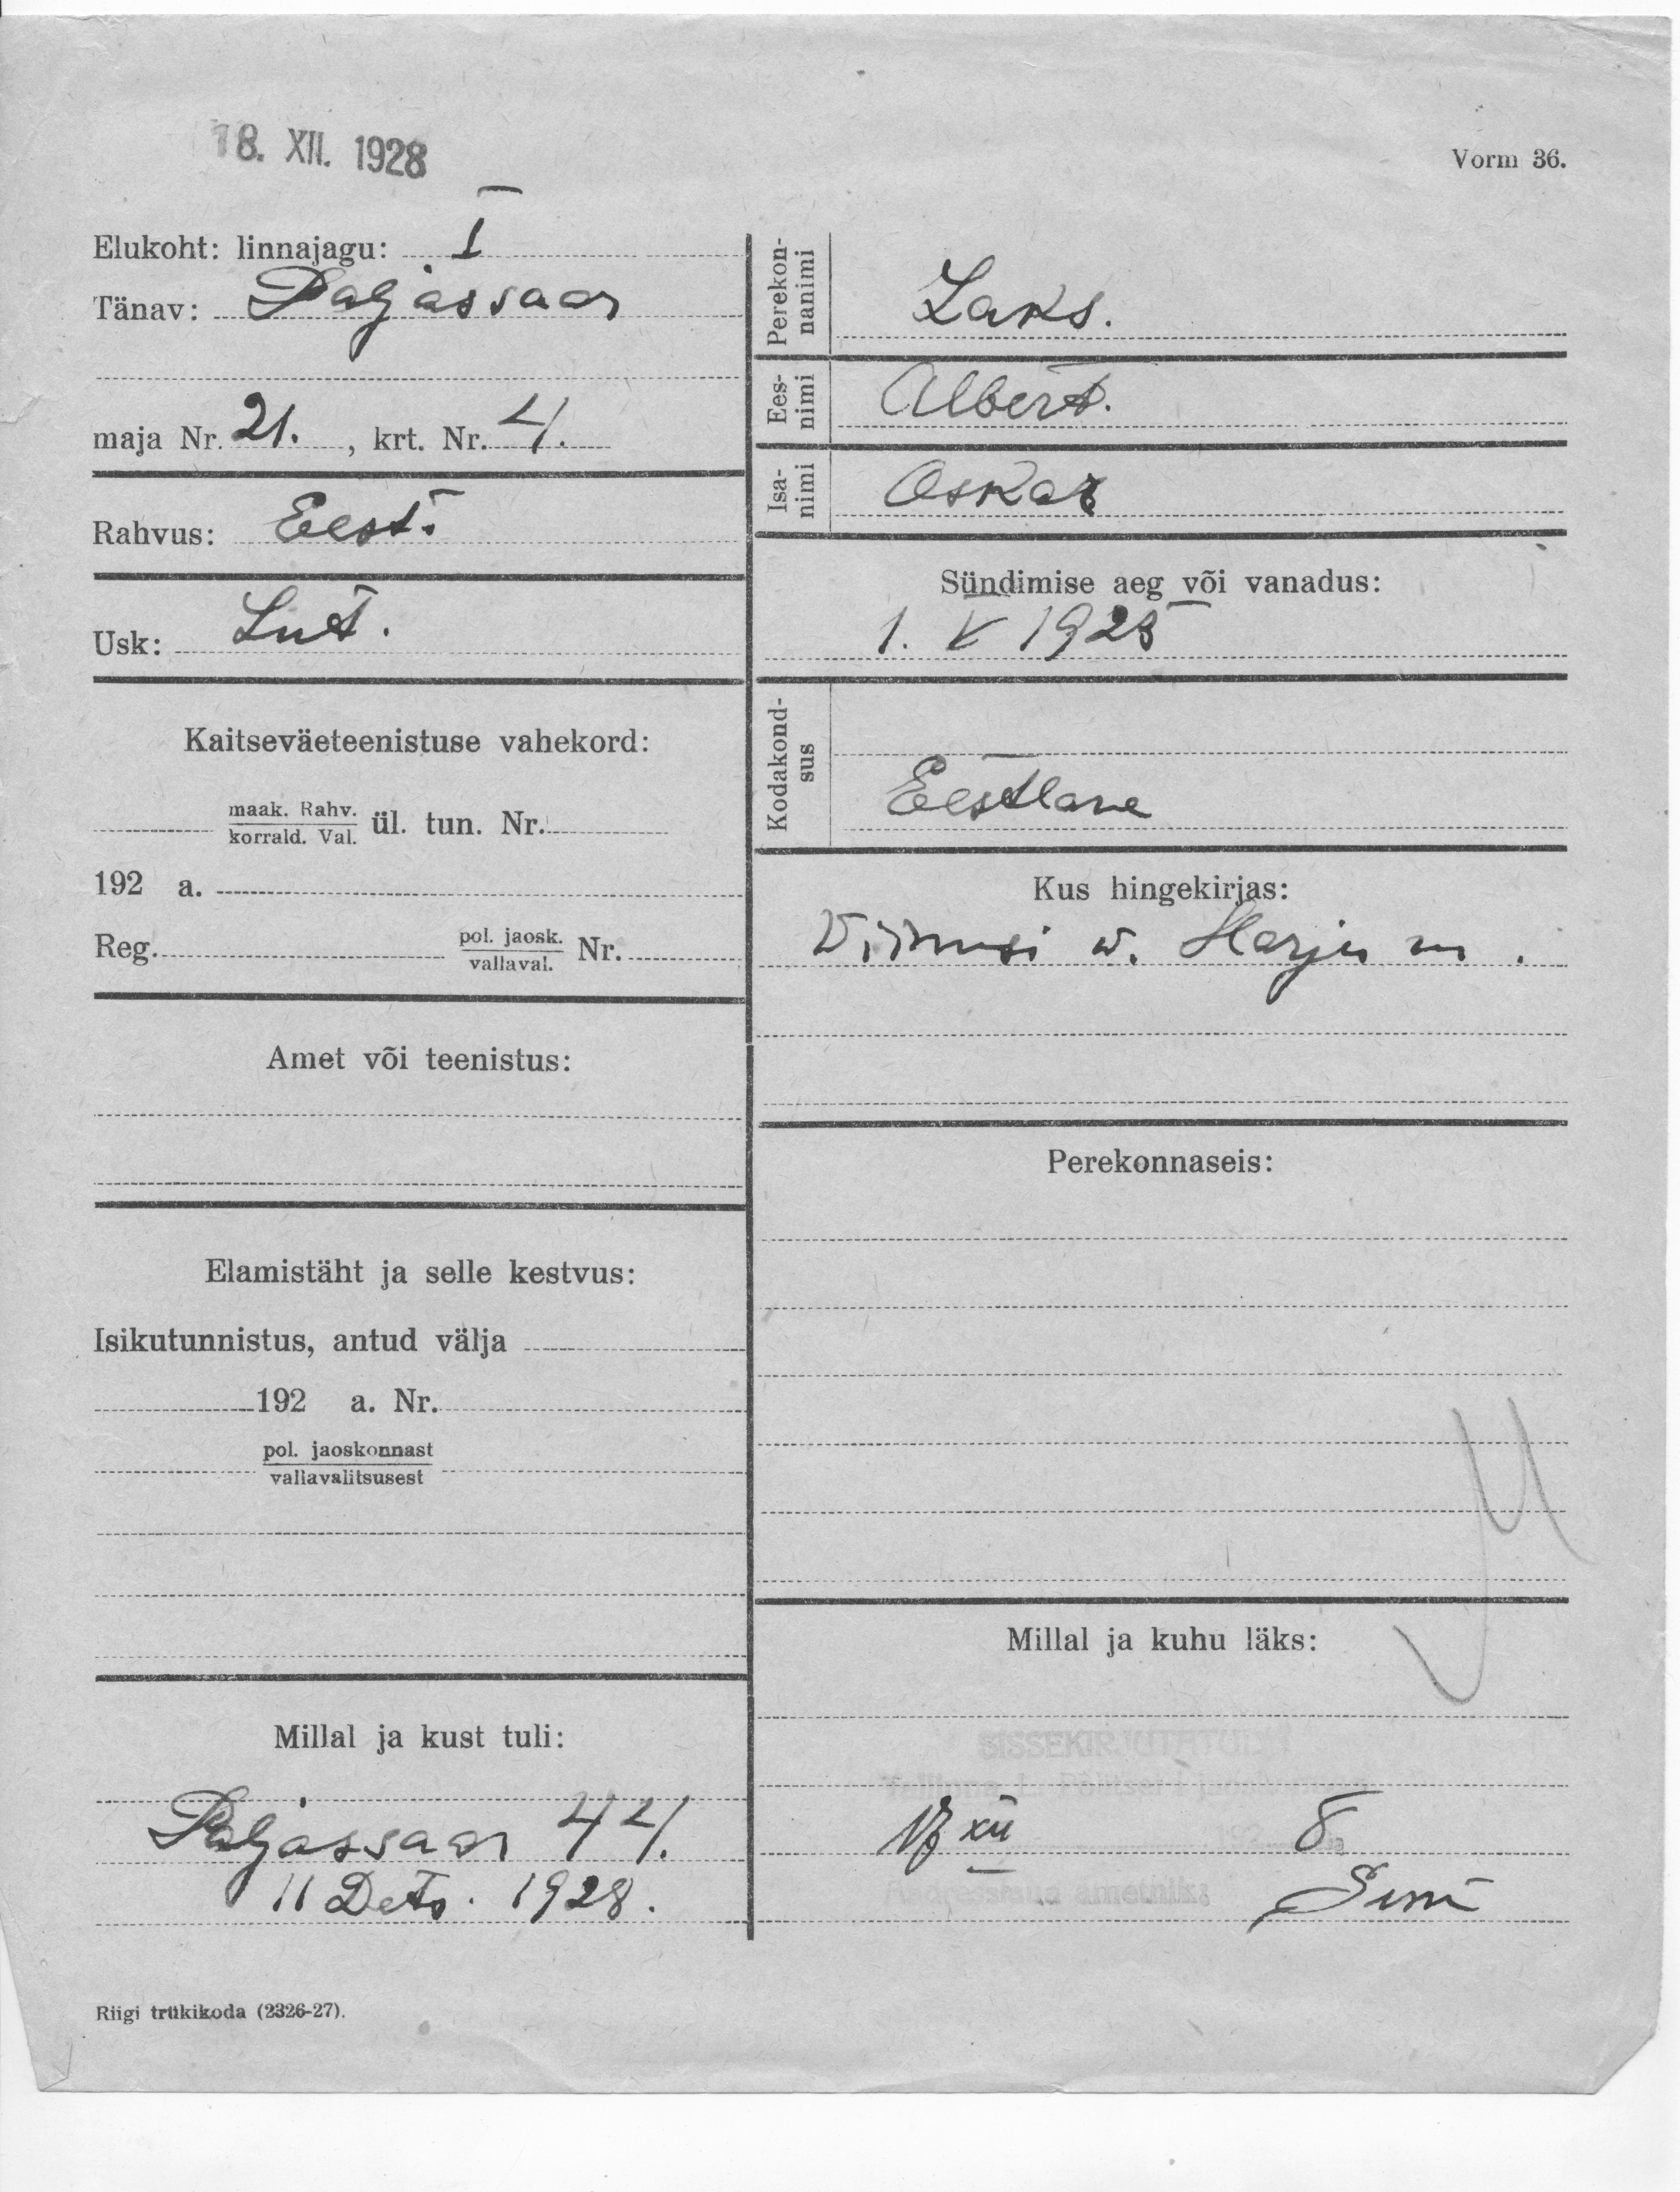 18. XII. 1928
Vorm 36.
Elukoht: linnajagu: I
Tänav: Paljassaar
maja Nr. 21. , krt. Nr. 4.
Rahvus: Eesti
Usk: Lut.
Kaitseväeteenistuse vahekord:
maak. Rahv.
korrald. Val. ül. tun. Nr.
192 a.
Reg. pol. jaosk.
vallaval. Nr.
Amet või teenistus:
Elamistäht ja selle kestvus:
Isikutunnistus, antud välja
192 a. Nr.
pol. jaoskonnast
vallavalitsusest
Millal ja kust tuli:
Paljassaar 44.
11 Dets. 1928.
Perekon-
nanimi Laks.
Ees-
nimi Albert.
Isa-
nimi Oskar
Sündimise aeg või vanadus:
1. V 1925
Kodakond-
sus
Eestlane
Kus hingekirjas:
w. Harju m.
Perekonnaseis:
Millal ja kuhu läks:
SISSEKIRJUTATUD
Tallinna I Politsei
XII 192 8
Aadressilaua ametnik:
Riigi trükikoda (2326-27).